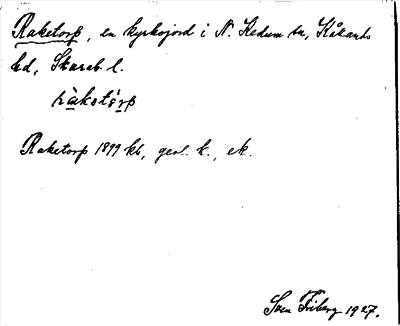 Raketorp, en kyrkojord i N. Kedum sn, Kåkants
hd, Skarab. l.
ràkstórp
Raketorp 1899 kb, geol. k., ek.
Sven Friberg 1927.